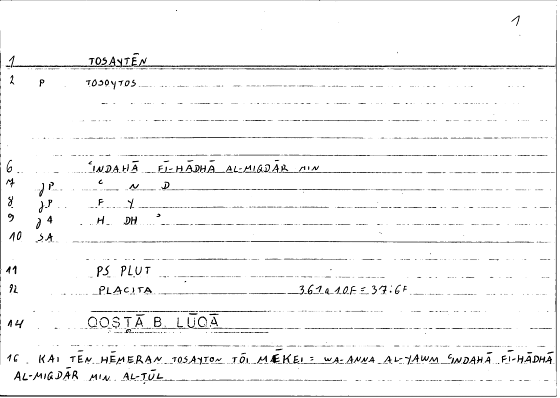 1
1 TOSAYTĒN
2 P TOSOYTOS
6 ʿINDAHĀ FĪ-HĀDHĀ AL-MIQDĀR MIN
7 jP ʿ N D
8 jP F Y
9 j4 H DH ʾ
10 SA
11 PS PLUT
12 PLACITA 361a10F = 37:6F
14 QOSṬĀ B. LŪQĀ
16 KAI TĒN HĒMERAN TOSAYTON TŌI MĒKEI = WA-ANNA AL-YAWM ʿINDAHĀ FĪ-HĀDHĀ
AL-MIQDĀR MIN AL-ṬŪL